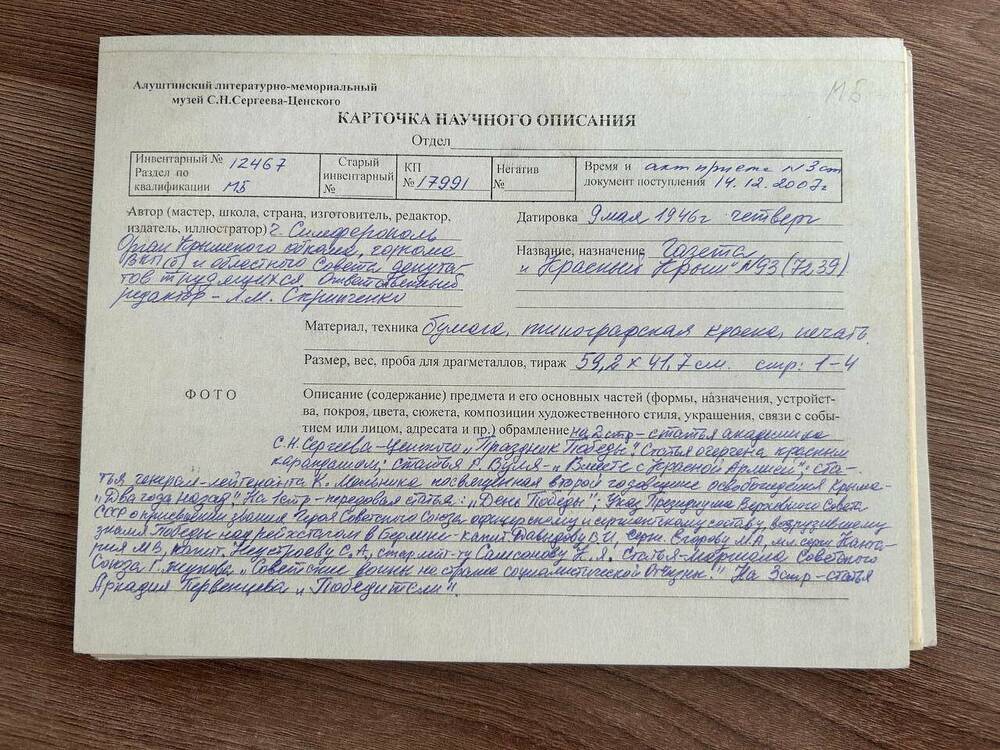 Алуштинский литературно-мемориальный
музей С.Н.Сергеева-Ценского
МБ
КАРТОЧКА НАУЧНОГО ОПИСАНИЯ
Отдел
Инвентарный № 12467
Раздел по
квалификации МБ
Старый
инвентарный
№
КП
№ 17991
Негатив
№
Время и акт приема №3 от
документ поступления 14.12.2007г
Автор (мастер, школа, страна, изготовитель, редактор,
издатель, иллюстратор) г. Симферополь
Орган Крымского обкома, горкома
ВКП(б) и областного Совета депута-
тов трудящихся. Ответственный
редактор – Л.М. Скрипченко
Датировка 9 мая 1946г четверг
Название, назначение Газета
"Красный Крым" №93 (7239)
Материал, техника бумага, типографская краска, печать
Размер, вес, проба для драгметаллов, тираж 59,2 х 41,7 см. стр: 1–4
ФОТО
Описание (содержание) предмета и его основных частей (формы, назначения, устройст-
ва, покроя, цвета, сюжета, композиции художественного стиля, украшения, связи с собы-
тием или лицом, адресата и пр.) обрамление на 2 стр – статья академика
С.Н. Сергеева-Ценского "Праздник Победы". Статья очерчена красным
карандашом; Статья Р. Вуля – "Вместе с Красной Армией"; ста-
тья генерал-лейтенанта К. Мельника посвященная второй годовщине освобождения Крыма –
"Два года назад". На 1 стр – передовая статья: "День Победы"; Указ Президиума Верховного Совета
СССР о присвоении звания Героя Советского Союза офицерскому и сержантскому составу, водрузившему
знамя Победы над рейхстагом в Берлине – капит. Давыдову В.И, серж. Егорову М.А, мл. серж Канта-
рия М.В, капит. Неустроеву С.А, ст. лейт-ту Самсонову К.Я. Статья маршала Советского
Союза Г. Жукова "Советские воины на страже социалистической Отчизны!" На 3 стр – статья
Аркадия Первенцева "Победители".